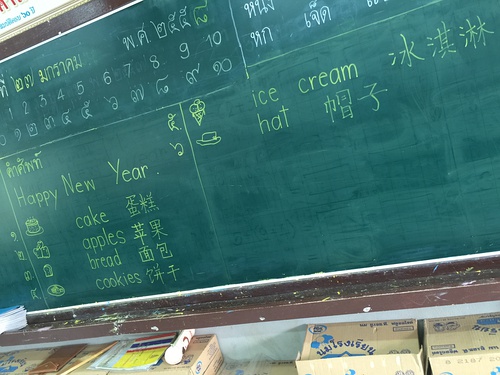 ที่ ๒๗ มกราคม พ.ศ ๒๕๕๘
1 2 3 4 5 6 7 8 9 10
๑ ๒ ๓ ๔ ๕ ๖ ๗ ๘ ๙ ๑๐
หนึ่ง
หก เจ็ด
คำศัพท์
Happy New Year.
๑ cake 蛋糕
๒ apples 苹果
๓ bread 面包
๔ cookies 饼干
๕ ice cream 冰淇淋
๖ hat 帽子
นมโรงเรียน